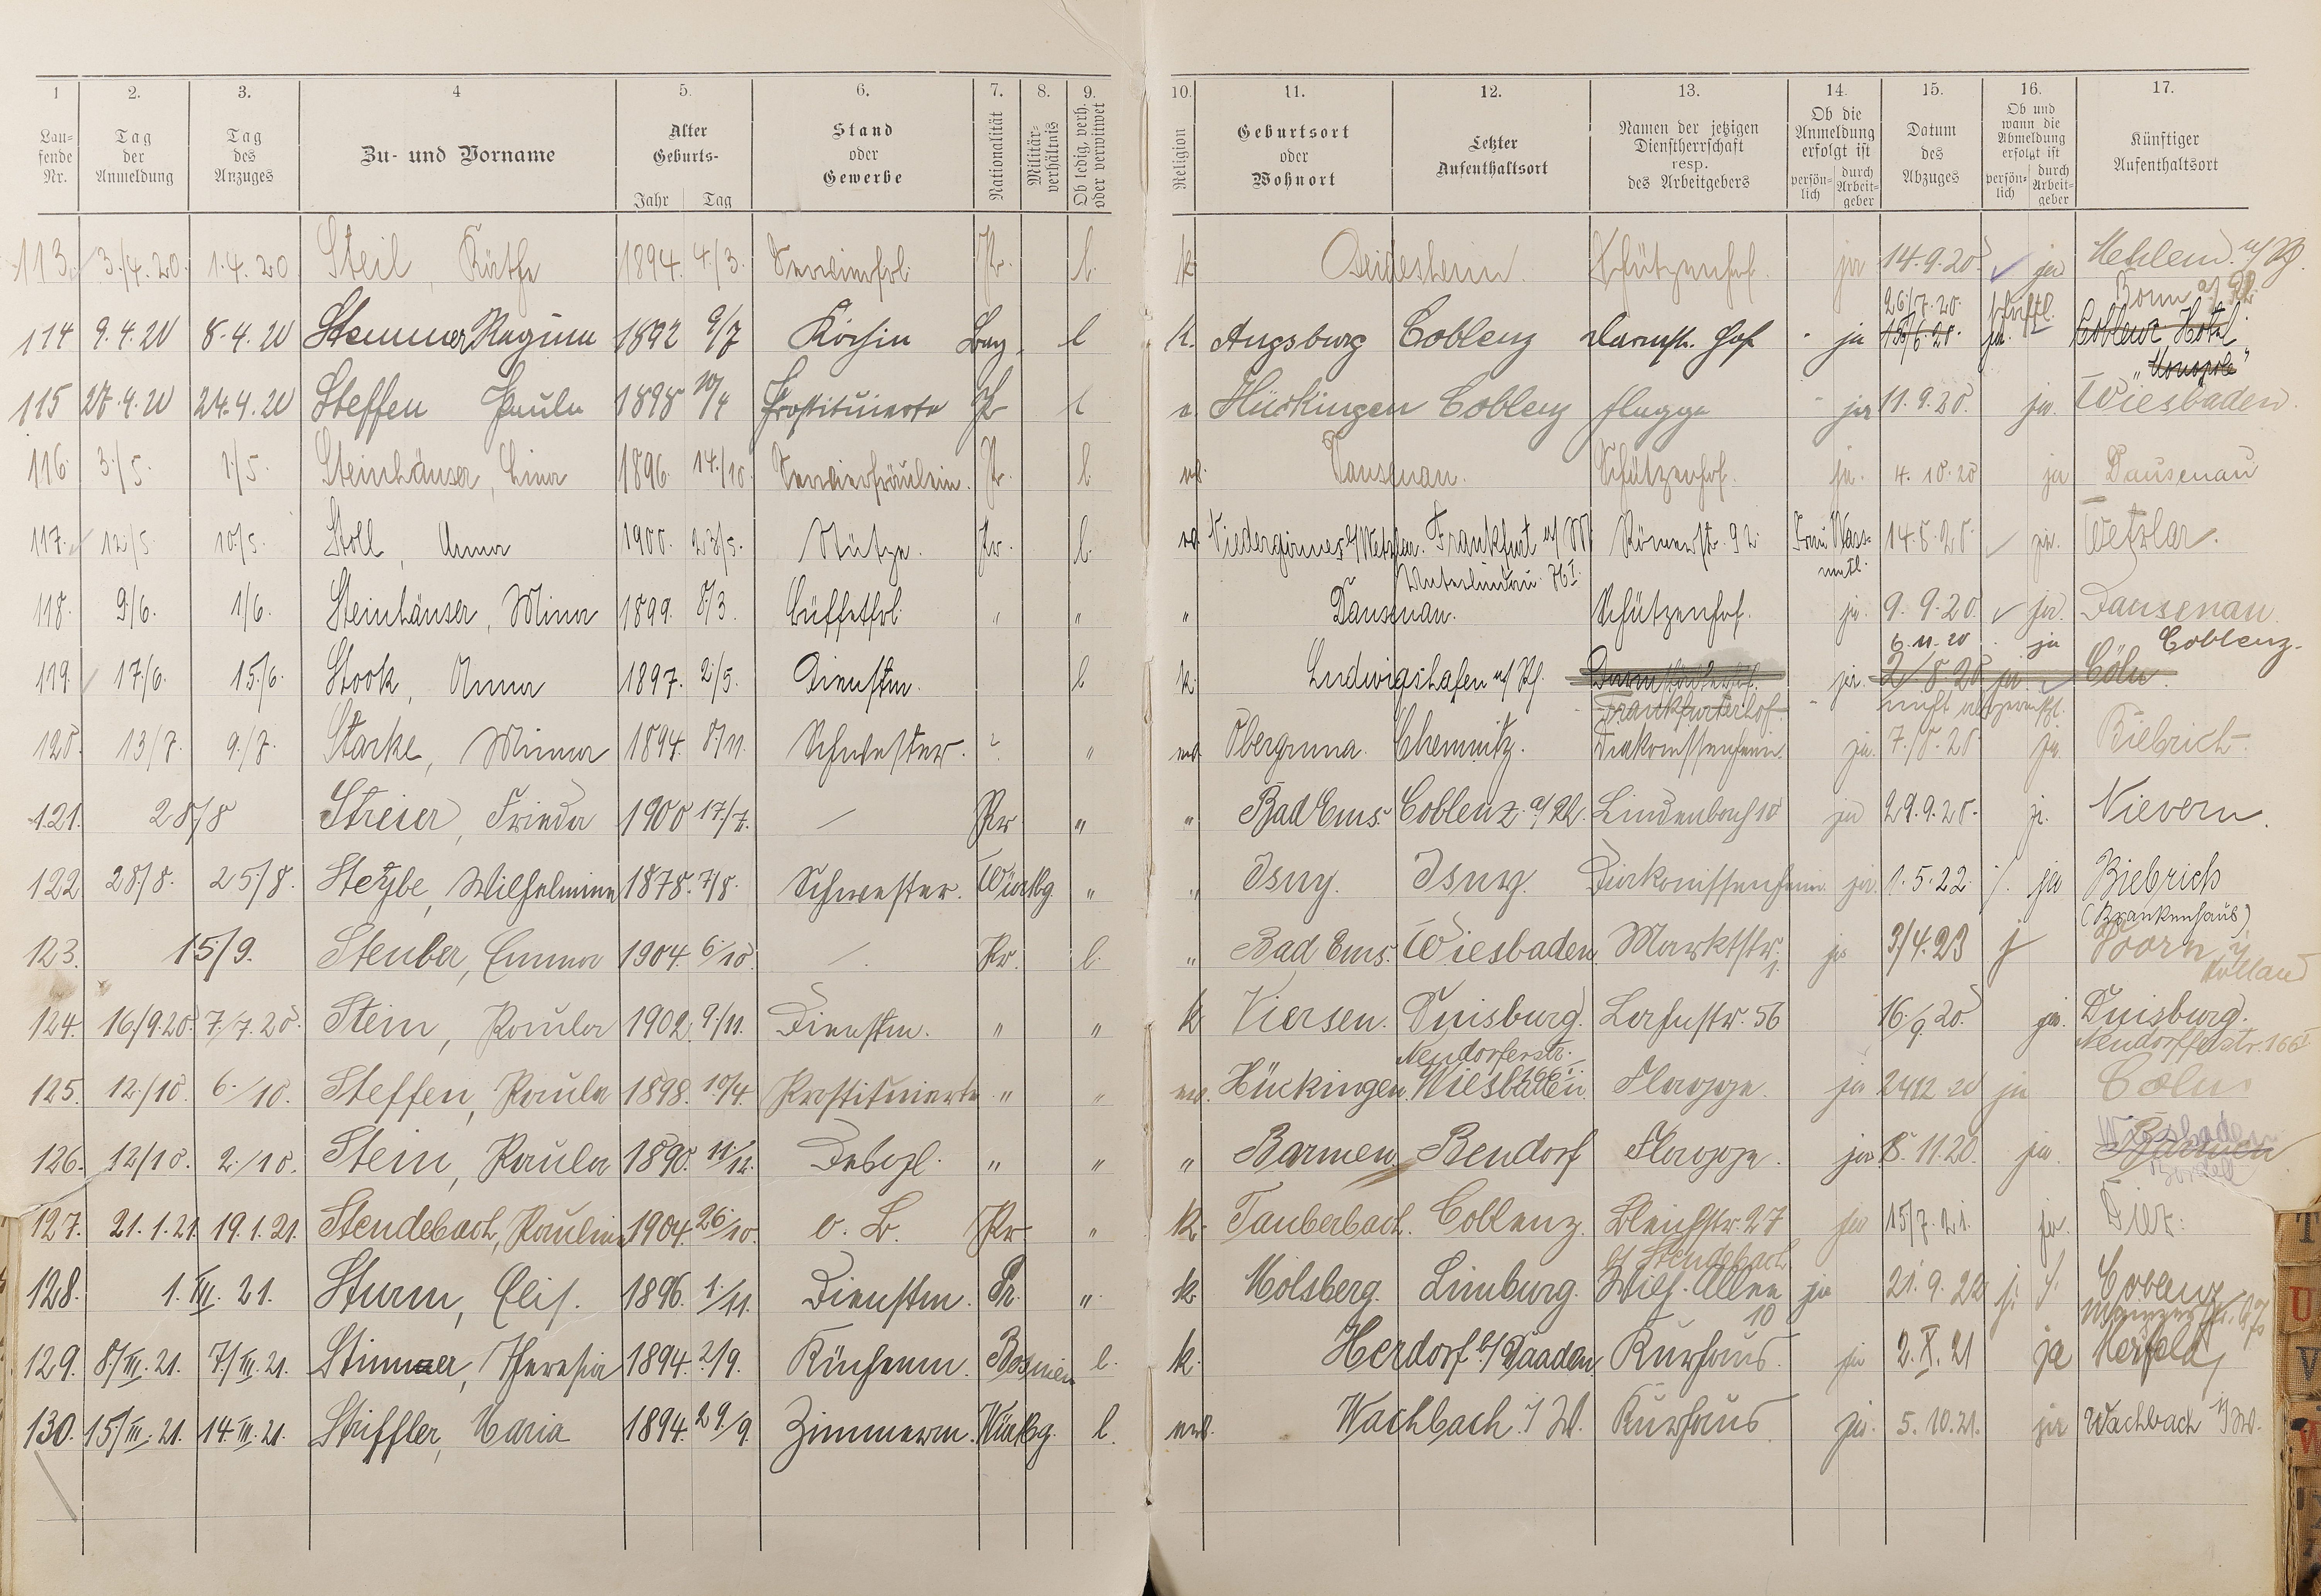 1 2. 3. 4 5. 6. 7. 8. 9. 10. 11. 12. 13. 14. 15. 16. 17.
Laufende Nr. Tag der Anmeldung Tag des Anzuges Zu- und Vorname Alter Geburts- Jahr Tag Stand oder Gewerbe Nationalität Militärverhältnis Ob ledig, verh. oder verwitwet Religion Geburtsort oder Wohnort Letzter Aufenthaltsort Namen der jetzigen Dienstherrschaft resp. des Arbeitgebers Ob die Anmeldung erfolgt ist persönlich durch Arbeitgeber Datum des Abzuges Ob und wann die Abmeldung erfolgt ist persönlich durch Arbeitgeber Künftiger Aufenthaltsort
113. 3./4.20. 1.4.20 Steil, Käthe 1894. 4./3. Servierfrl. Pr. l. k. Deidesheim. Schützenhof. ja 14.9.20. ja Mehlem a/Rh.
26./7.20. schriftl. Bonn a/Rh.
114 9.4.20 8.4.20 Stemmer Regina 1892 9/7 Köchin Bay. l k. Augsburg Coblenz Darmst. Hof - ja 15/6.20. ja. Coblenz Hotel
"Monopole"
115 27.4.20 24.4.20 Steffen Paula 1898 10/4 Prostituierte Pr l e. Hückingen Coblenz Flagge - ja 11.9.20. ja. Wiesbaden.
116. 3./5. 1./5. Steinhäuser, Lina 1896. 14./10. Servierfräulein. Pr. l. ev. Dausenau. Schützenhof. ja. 4.10.20 ja Dausenau
117. 12./5. 10./5. Stoll, Anna 1900. 23/5. Stütze. Pr. l. ev. b/Wetzlar. Frankfurt a/M Römerstr. 92. Frau 14.8.20. ja. Wetzlar.
Unterlindau 76 I.
118. 9/6. 1/6. Steinhäuser, Mina 1899. 8/3. Büffetfrl. " " " Dausenau. Schützenhof. ja. 9.9.20. ja. Dausenau.
6.11.20. ja Coblenz.
119. 17/6. 15./6. Stook, Anna 1897. 2/5. Dienstm. l k. Ludwigshafen a/Rh. ja. 2/8.20 ja. Cöln.
Frankfurterhof.
120. 13/7. 9./7. Starke, Minna 1894. 8/11. Schwester. ? " ev. Obergruna. Chemnitz. Diakonissenheim. ja. 7./8.20 ja. Biebrich.
121. 28/8 Streser, Frieda 1900 17./2. — Pr " " Bad Ems. Coblenz a/Rh. Lindenbach 10 ja 29.9.20. ja. Nievern.
122 28./8. 25./8. Stetzbe, Wilhelmine 1878. 7/8. Schwester. Württbg. " " Isny. Isny. Diakonissenheim ja. 1.5.22. ja Biebrich
(Krankenhaus)
123. 15./9. Steuber, Emma 1904. 6/10. — Pr. l. " Bad Ems. Wiesbaden. Marktstr. 1. ja 3./4.23 j Hoorn i/
Holland
124. 16./9.20. 7./7.20. Stein, Paula 1902. 9./11. Dienstm. " " k Viersen. Duisburg. Lahnstr. 56 16./9.20. ja. Duisburg.
Neudorferstr. 166 I. Neudorferstr. 166 I
125. 12./10. 6./10. Steffen, Paula 1898. 10./4. Prostituierte " " ev. Hückingen. Wiesbaden. Flagge. ja 24.12.20 ja Cöln.
126. 12/10. 2./10. Stein, Paula 1890. 11./12. Desgl. " " " Barmen Bendorf Flagge. ja 8.11.20. ja. Barmen
Wiesbaden
Bordell
127. 21.1.21. 19.1.21. Stendebach, Pauline 1904. 26./10. o. B. Pr " k. Tauberbach. Coblenz. Bleichstr. 27 ja 15/7.21. ja. Diez.
b/ Stendebach.
128. 1.III.21. Sturm, Elis. 1896. 1./11. Dienstm. Pr. " k. Molsberg. Limburg. Wilh. Allee 10 ja 21.9.22 Coblenz
129. 8./III.21. 7./III.21. Stimmer, Theresia 1894. 2/9. Küchenm. Bosnien l. k. Herdorf b/ Daaden. Kurhaus. ja 2.X.21 ja
130. 15./III.21. 14.III.21. Striffler, Maria 1894. 29./9. Zimmerm. Württbg. l. ev. Wachbach i/W. Kurhaus. ja. 5.10.21. ja Wachbach i/W.
T
U
V
W